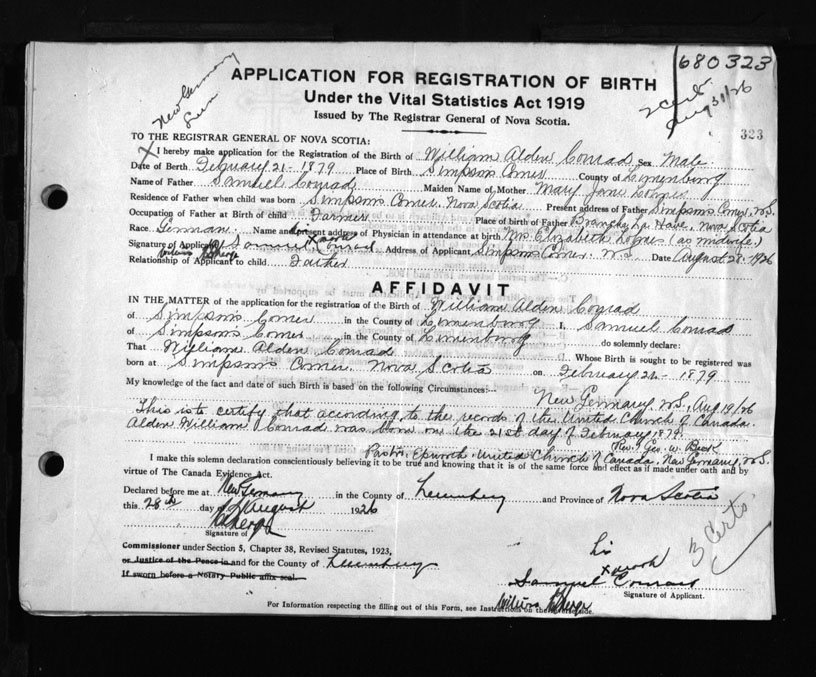 680323
New Germany
APPLICATION FOR REGISTRATION OF BIRTH
Under the Vital Statistics Act 1919
Issued by The Registrar General of Nova Scotia.
Aug 31/26
323
TO THE REGISTRAR GENERAL OF NOVA SCOTIA:
X I hereby make application for the Registration of the Birth of William Alden Conrad Sex Male
Date of Berth February 21 - 1879 Place of Birth Simpsons Corner County of Lunenburg
Name of Father Samuel Conrad Maiden Name of Mother Mary Jane
Residence of Father when child was born Simpsons Corner, Nova Scotia Present address of Father Simpsons Corner, N.S.
Occupation of Father at Birth of child Farmer Place of birth of Father Branch La Have, Nova Scotia
Race German Name and present address of Physician in attendance at birth Mrs Elizabeth (as midwife)
Signature of Applicant Samuel X Conrad mark Address of Applicant Simpsons Corner, N.S. Date August 28 - 1926
Relationship of Applicant to child Father
AFFIDAVIT
IN THE MATTER of the application for the registration of the Birth of William Alden Conrad
of Simpsons Corner in the County of Lunenburg I, Samuel Conrad
of Simpsons Corner in the County of Lunenburg do solemnly declare:
That William Alden Conrad Whose Birth is sought to be registered was
born at Simpsons Corner Nova Scotia on February 21 - 1879
My knowledge of the fact and date of such Birth is based on the following Circumstances:--
New Germany, N.S., Aug 19/26
This is to certify that according to the records of the United Church of Canada.
Alden William Conrad was born on the 21st day of February 1879.
Rev. Geo. W.
Pastor, Epworth United Church of Canada, New Germany, N.S.
I make this solemn declaration conscientiously believing it to be true and knowing that it is of the same force and effect as if made under oath and by
virtue of The Canada Evidence Act.
Declared before me at New Germany in the County of Lunenburg and Province of Nova Scotia
this 28th day of August 1926
Signature of
3 Certs.
Commissioner under Section 5, Chapter 38, Revised Statutes, 1923,
or Justice of the Peace in and for the County of Lunenburg
If sworn before a Notary Public affix seal.
his
X mark
Samuel Conrad
Signature of Applicant.
For Information respecting the filling out of this Form, see Instructions on the